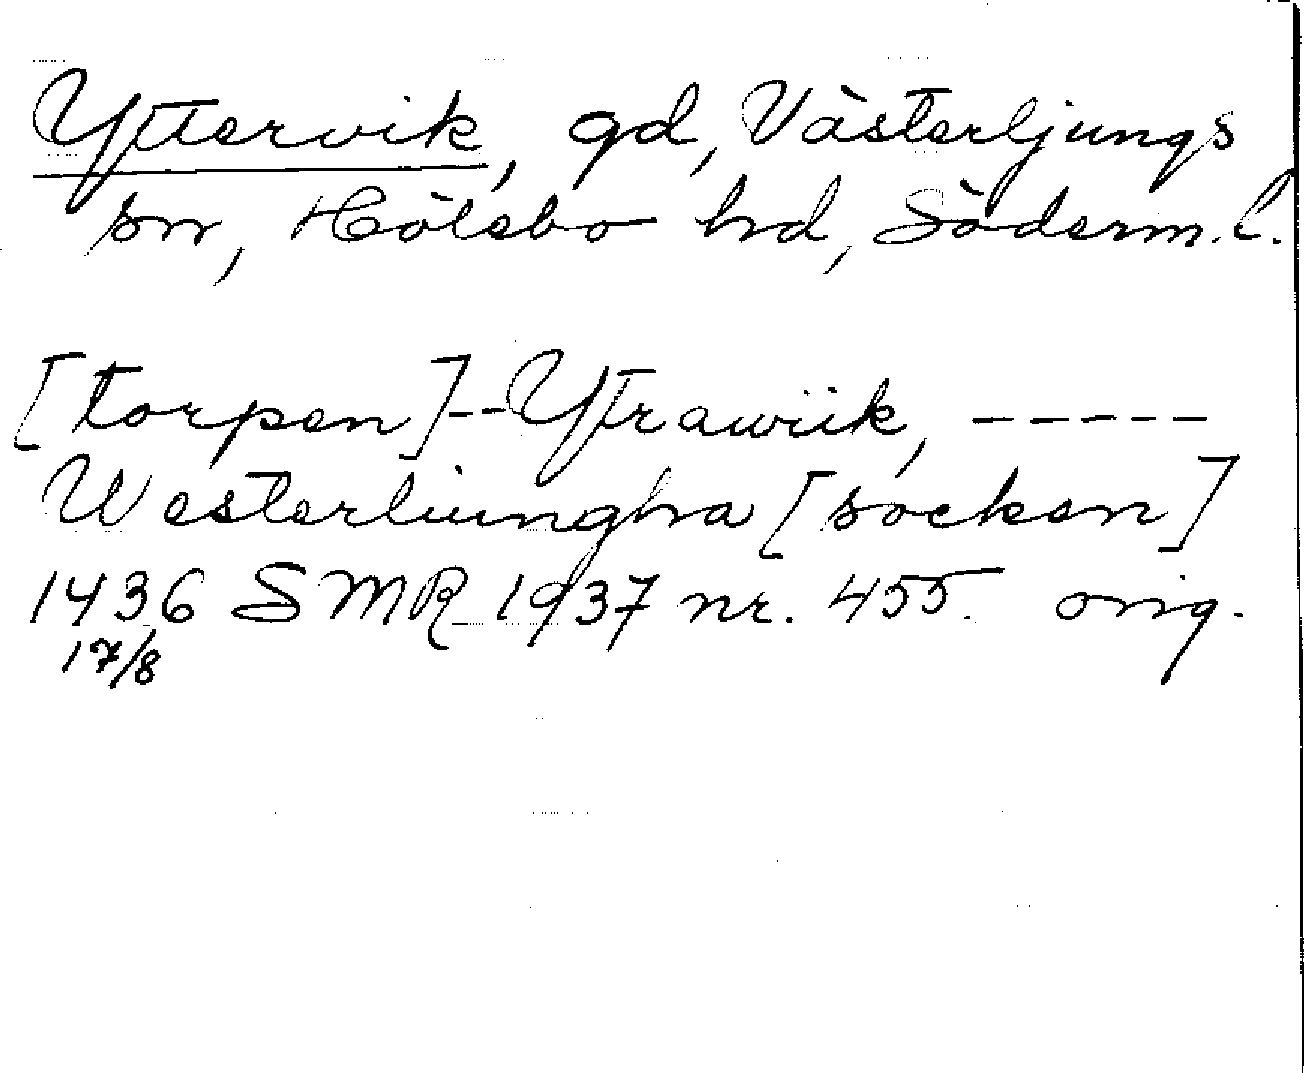 Yttervik, gd, Västerljungs
sn, Hölebo hd, Söderm. l.
[torpen]--Ytrawiik, -----
Westerliungha [socken]
1436 SMR 1937 nr. 455. orig.
17/8